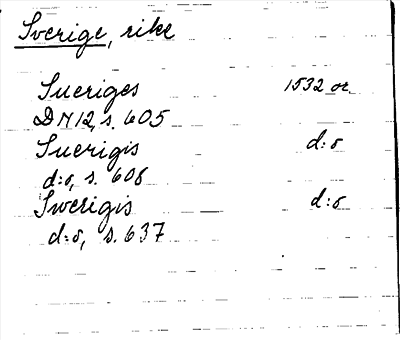 Sverige, rike
Sueriges 1532 or
DN12, s. 605
Suerigis d:o
d:o, s. 608
Swerigis d:o
d:o, s. 637